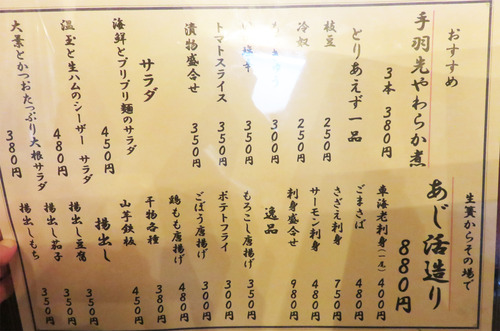 おすすめ
手羽先やわらか煮
3本 380円
とりあえず一品
枝豆 250円
冷奴 250円
300円
350円
トマトスライス 350円
漬物盛合せ 350円
サラダ
海鮮とプリプリ麺のサラダ 450円
温玉と生ハムのシーザー サラダ 480円
大葉とかつおたっぷり大根サラダ 380円
生簀からその場で
あじ活造り
880円
車海老刺身(一尾) 400円
ごまさば 480円
さざえ刺身 750円
サーモン刺身 480円
刺身盛合せ 980円
逸品
もろこし唐揚げ 350円
ポテトフライ 300円
ごぼう唐揚げ 300円
鶏もも唐揚げ 480円
干物各種 380円
山芋鉄板 450円
揚出し
揚出し豆腐 350円
揚出し茄子 350円
揚出しもち 350円